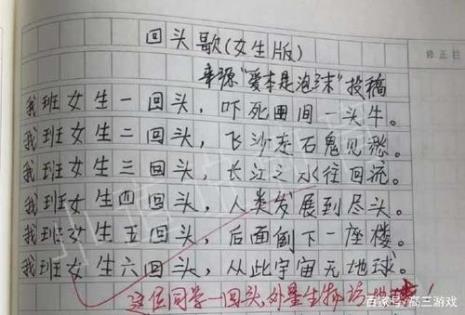 回头歌(女生版)
来源"爱本是泡沫"投稿
修正栏
我班女生一回头，吓死田间一头牛。
我班女生二回头，飞沙走石鬼见愁。
我班女生三回头，长江之水往回流。
我班女生四回头，人类发展到尽头。
我班女生五回头，后面倒下一座楼。
我班女生六回头，从此宇宙无地球。
这位同学一回头,外星生物
百家号/高三游戏